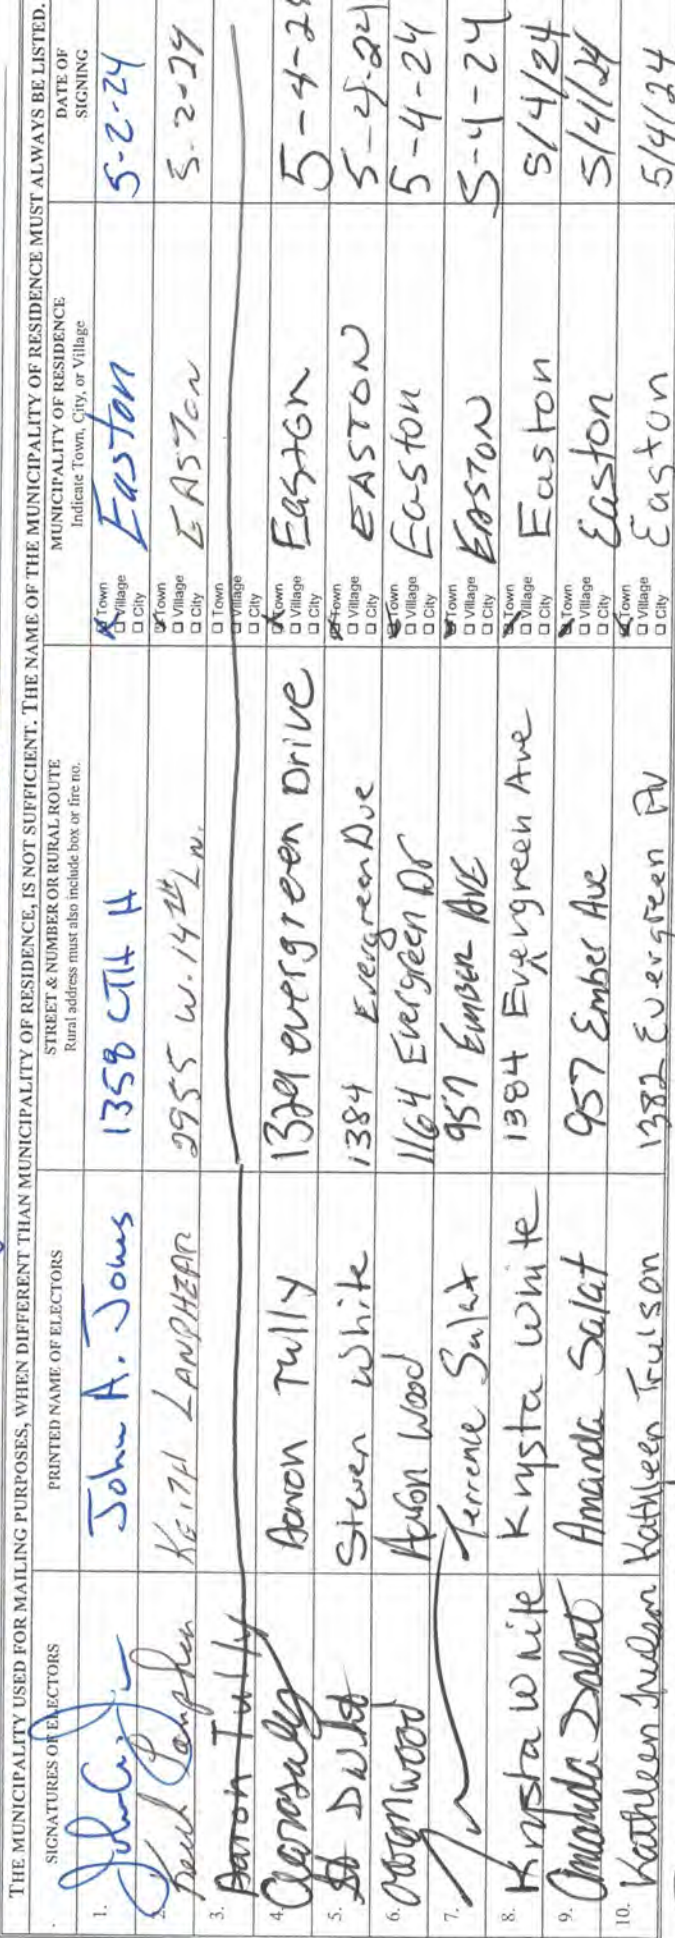 THE MUNICIPALITY USED FOR MAILING PURPOSES, WHEN DIFFERENT THAN MUNICIPALITY OF RESIDENCE, IS NOT SUFFICIENT. THE NAME OF THE MUNICIPALITY OF RESIDENCE MUST ALWAYS BE LISTED.
SIGNATURES OF ELECTORS
PRINTED NAME OF ELECTORS
STREET & NUMBER OR RURAL ROUTE
Rural address must also include box or fire no.
MUNICIPALITY OF RESIDENCE
Indicate Town, City, or Village
DATE OF
SIGNING
1. John A. Jones 1358 CTH H Town Village City Easton 5-2-24
2. KEITH LANPHEAR 2955 W. 14TH LN. Town Village City EASTON 5-2-24
3. Aaron Tully Town Village City
4. Aaron Tully 1329 evergreen Drive Town Village City Easton 5-4-24
5. Steven White 1384 Evergreen Ave Town Village City EASTON 5-4-24
6. Aaron Wood Aaron Wood 1164 Evergreen Dr Town Village City Easton 5-4-24
7. Terrence Salat 957 EMBER AVE Town Village City EASTON 5-4-24
8. Krysta White Krysta White 1384 Evergreen Ave Town Village City Easton 5/4/24
9. Amanda Salat Amanda Salat 957 Ember Ave Town Village City Easton 5/4/24
10. Kathleen Trulson Kathleen Trulson 1382 Evergreen Av Town Village City Easton 5/4/24